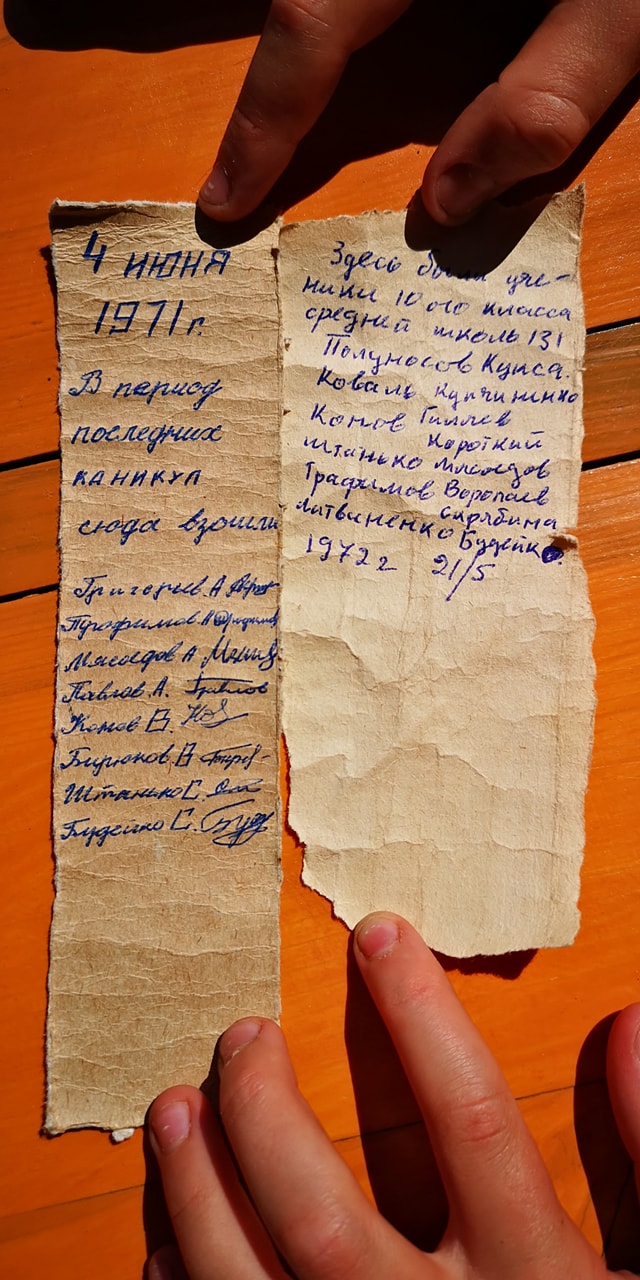 4 июня
1971 г.
В период
последних
каникул
сюда взошли
Григорьев А
Трофимов А
Мясоедов А
Павлов А.
Конов В.
Бирюков В
Штанько С.
Будейко С.
Здесь были уче-
ники 10 ого класса
средней школы 131
Полуносов Купса.
Коваль
Конов Гиляев
Короткий
Штанько Мясоедов
Трафимов Воропаев
Скрябина
Литвиненко Будейко.
1972 г 21/5